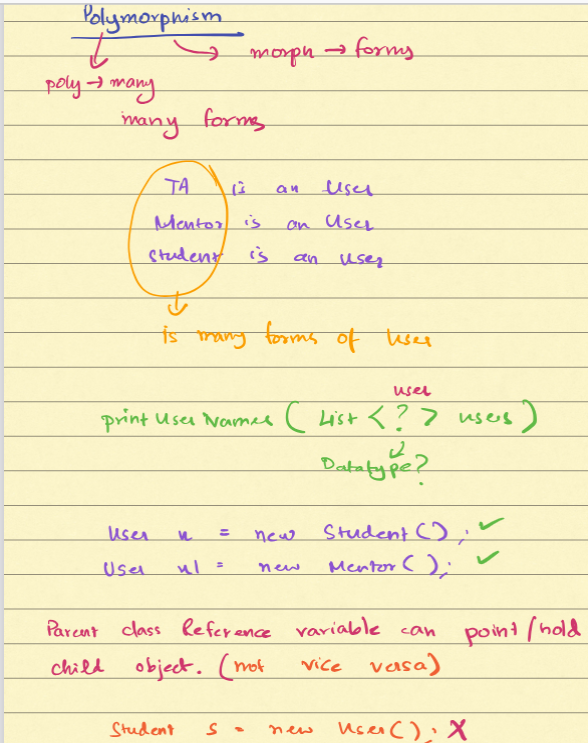 Polymorphism
morph → forms
poly → many
many forms
TA is an User
Mentor is an User
Student is an User
is many forms of User
user
print User Names ( List < ? > users )
Datatype?
User u = new Student();
User u1 = new Mentor();
Parent class Reference variable can point/hold
child object. (not vice versa)
Student s = new User(); X